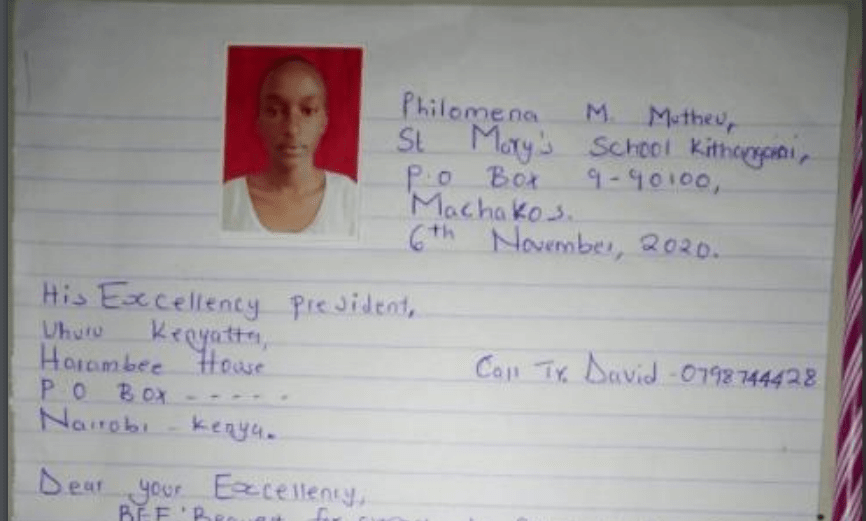 Philomena M. Mutheu,
St Mary's School Kithangaini,
P.O Box 9-90100,
Machakos.
6th November, 2020.
His Excellency president,
Uhuru Kenyatta,
Harambee House
Call Tr. David -0798744428
P O Box -----
Nairobi - Kenya.
Dear your Excellency,
REF: Request for